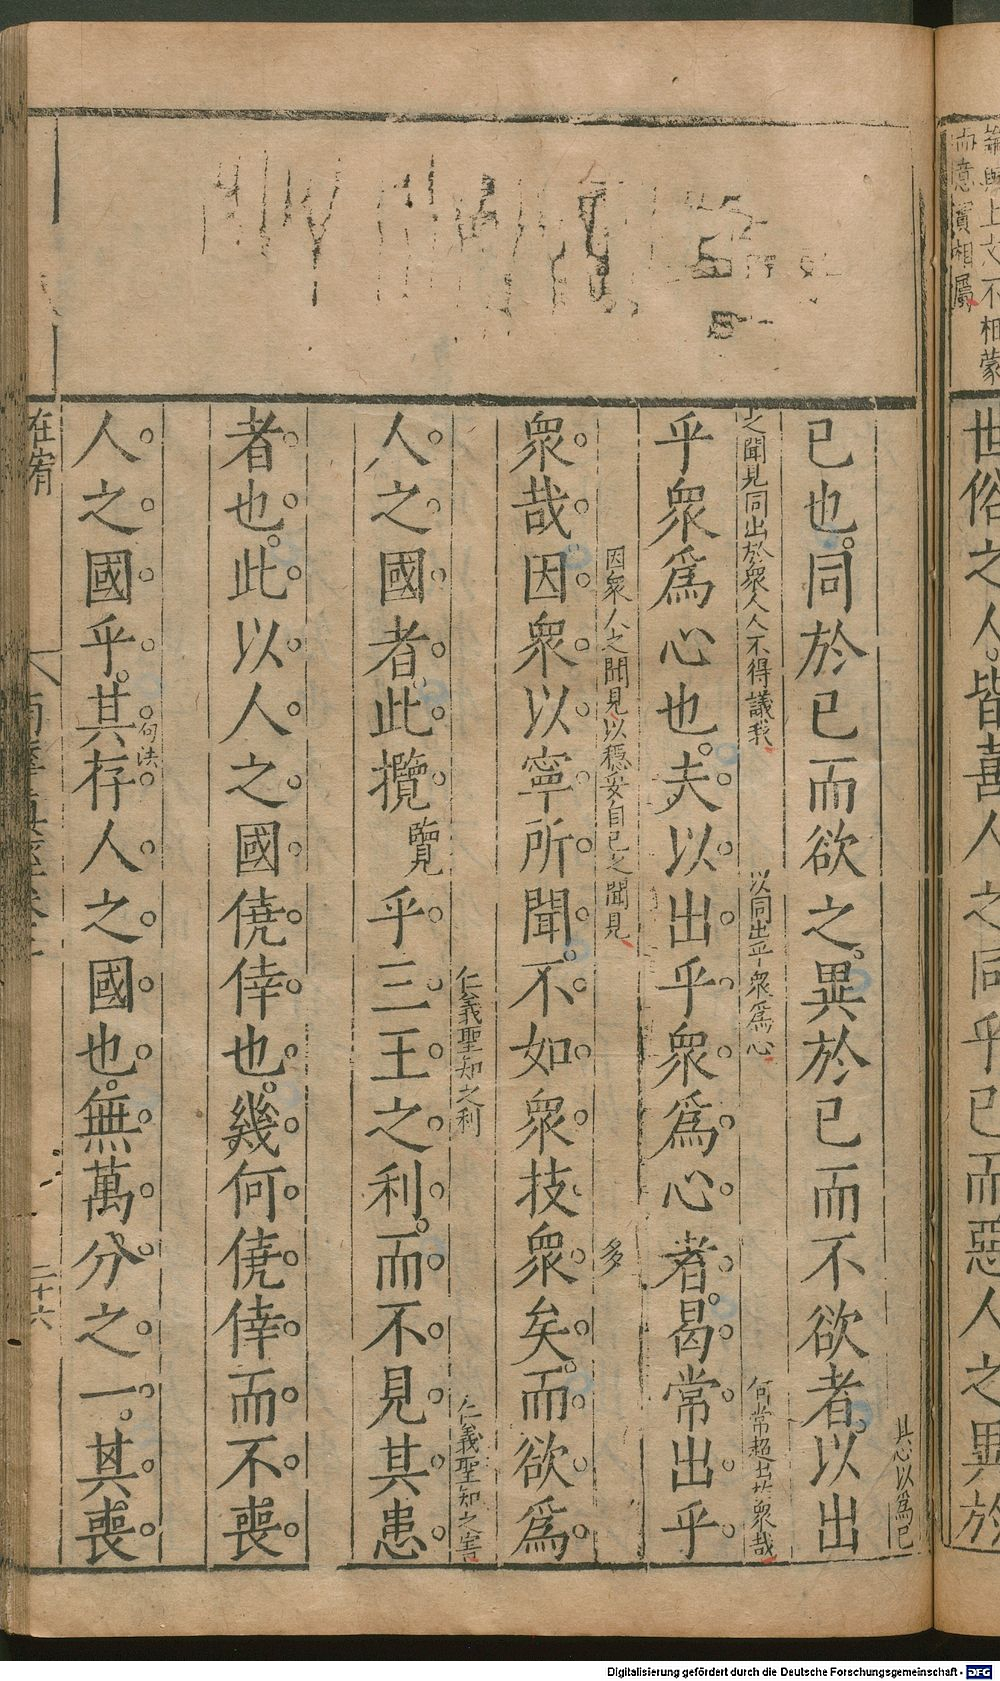 筆與上文不相蒙
而意實相屬
世俗之人皆喜人之同乎己而惡人之異於
其心以爲己
已也同於已而欲之異於已而不欲者以出
之聞見同出於衆人人不得議我
以同出乎衆爲心
何常超出於衆哉
乎衆爲心也夫以出乎衆爲心者曷常出乎
因衆人之聞見以穩妥自已之聞見
多
衆哉因衆以寧所聞不如衆技衆矣而欲爲
仁義聖知之利
仁義聖知之害
人之國者此攬覽乎三王之利而不見其患
者也此以人之國僥倖也幾何僥倖而不喪
句法
人之國乎其存人之國也無萬分之一其喪
在宥
南華真經卷三
二十六
Digitalisierung gefördert durch die Deutsche Forschungsgemeinschaft - DFG